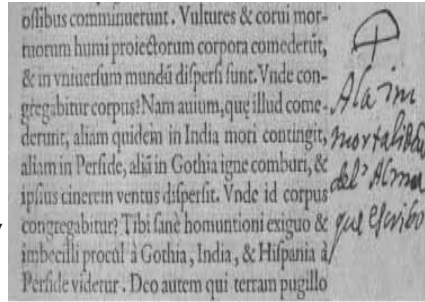 ossibus comminuerunt. Vultures & corui mor-
tuorum humi proiectorum corpora comederũt,
& in vniuersum mundũ dispersi sunt. Vnde con-
gregabitur corpus? Nam auium, quę illud come-
derunt, aliam quidem in India mori contingit,
aliam in Perside, aliã in Gothia igne comburi, &
ipsius cinerem ventus dispersit. Vnde id corpus
congregabitur? Tibi sanè homuntioni exiguo &
imbecilli procul à Gothia, India, & Hispania à
Perside videtur. Deo autem qui terram pugillo
A la im
mortalidad
del Alma
que escribo